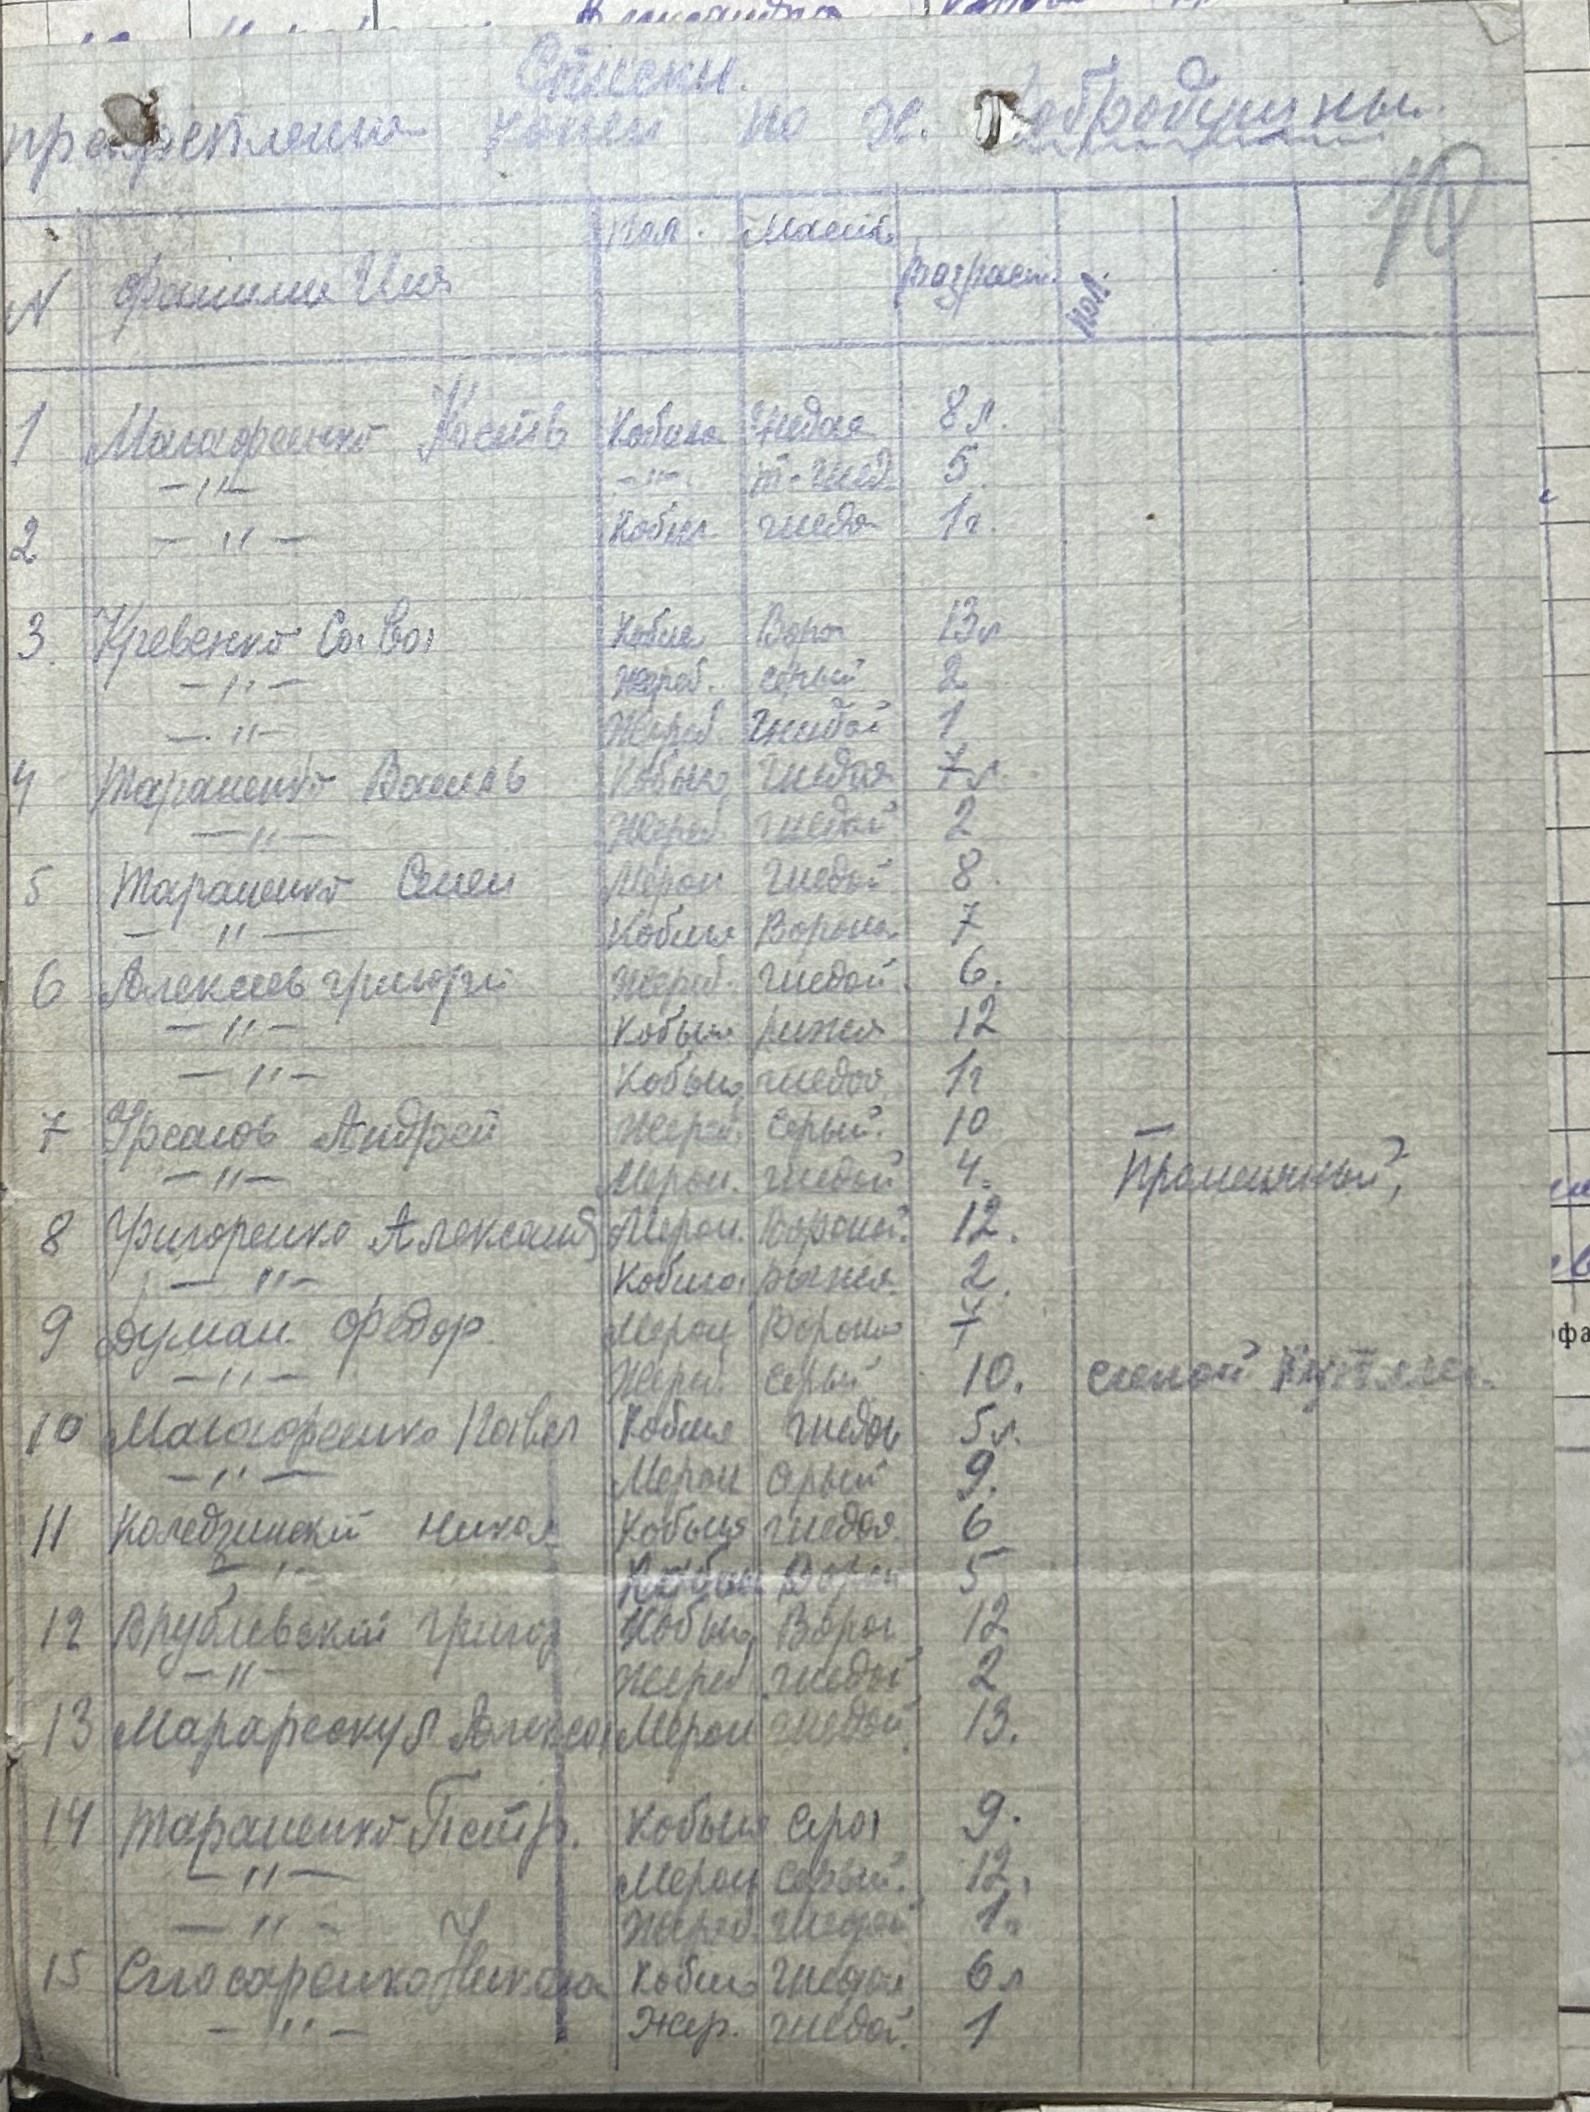 Списки
прикрепления коней по х. Добродушины.
N фамилия Имя Пол. Масть Возраст. пол.
1 Магаренко Кость Кобила гнедая 8 л.
— " — — " — т-гнед. 5.
2 — " — Кобыл. гнедая 1 г.
3. Кревенко Сава Кобила Ворон 13 л
— " — жереб. серый 2
— " — Жереб. гнидой 1
4 Тараненко Василь Кобыла гнедая 7 л.
— " — Жереб. гнедой 2
5 Тараненко Семен Мерон гнедой 8.
— " — Кобыла Ворона 7
6 Алексеев Григори жереб. гнедой. 6.
— " — Кобыла рижая 12
— " — Кобыла гнедая 1 г
7 Урсалов Андрей Жереб. Серый. 10
— " — Мерон. гнедой 4. Променяный,
8 Григоренко Александ Мерон. Вороной. 12.
— " — Кобила рыжая 2.
9 Думан. Федор. Мерон Ворон 7
— " — Жереб. серый 10. слепой
10 Магаренко Павел Кобила гнедая 5 л.
— " — Мерон серый 9.
11 Каледзинский Никол Кобыла гнедая 6
— " — Кобыла Ворон 5
12 Врублевский Григор Кобыла Ворон 12
— " — Жереб гнедой 2
13 Алекса Мерон гнедой 13.
14 Тараненко Петр. Кобыла сера 9.
— " — Мерон серый. 12.
— " — Жереб. гнедой 1 г
15 Слюсаренко Никола Кобила гнедая 6 л
— " — Жер. гнедой. 1